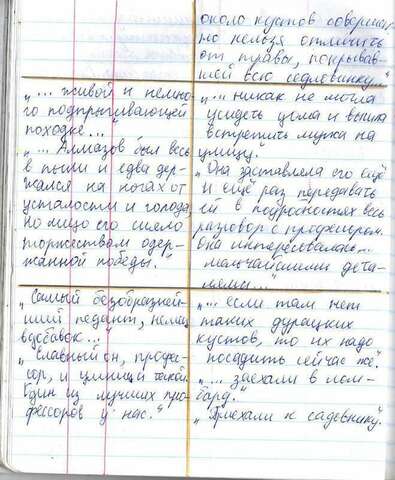 около кустов совершен
но нельзя отличить
от травы, покрывав-
шей всю седловинку..."
"... живой и немно-
го подпрыгивающей
походке..."
"... Алмазов был весь
в пыли и едва дер-
жался на ногах от
усталости и голода,
но лицо его сияло
торжеством одер-
жанной победы."
"... никак не могла
усидеть дома и вышла
встретить мужа на
улицу."
"Она заставляла его ещё
и ещё раз передавать
ей в подробностях весь
разговор с профессором.
Она интересовалась...
мельчайшими дета-
лями..."
"Самый безобразней-
ший педант, немец
вдобавок..."
"Славный он, профес-
сор, и умница такой.
Один из лучших про-
фессоров у нас."
"... если там нет
таких дурацких
кустов, то их надо
посадить сейчас же".
"... заехали в лом-
бард."
"Приехали к садовнику".